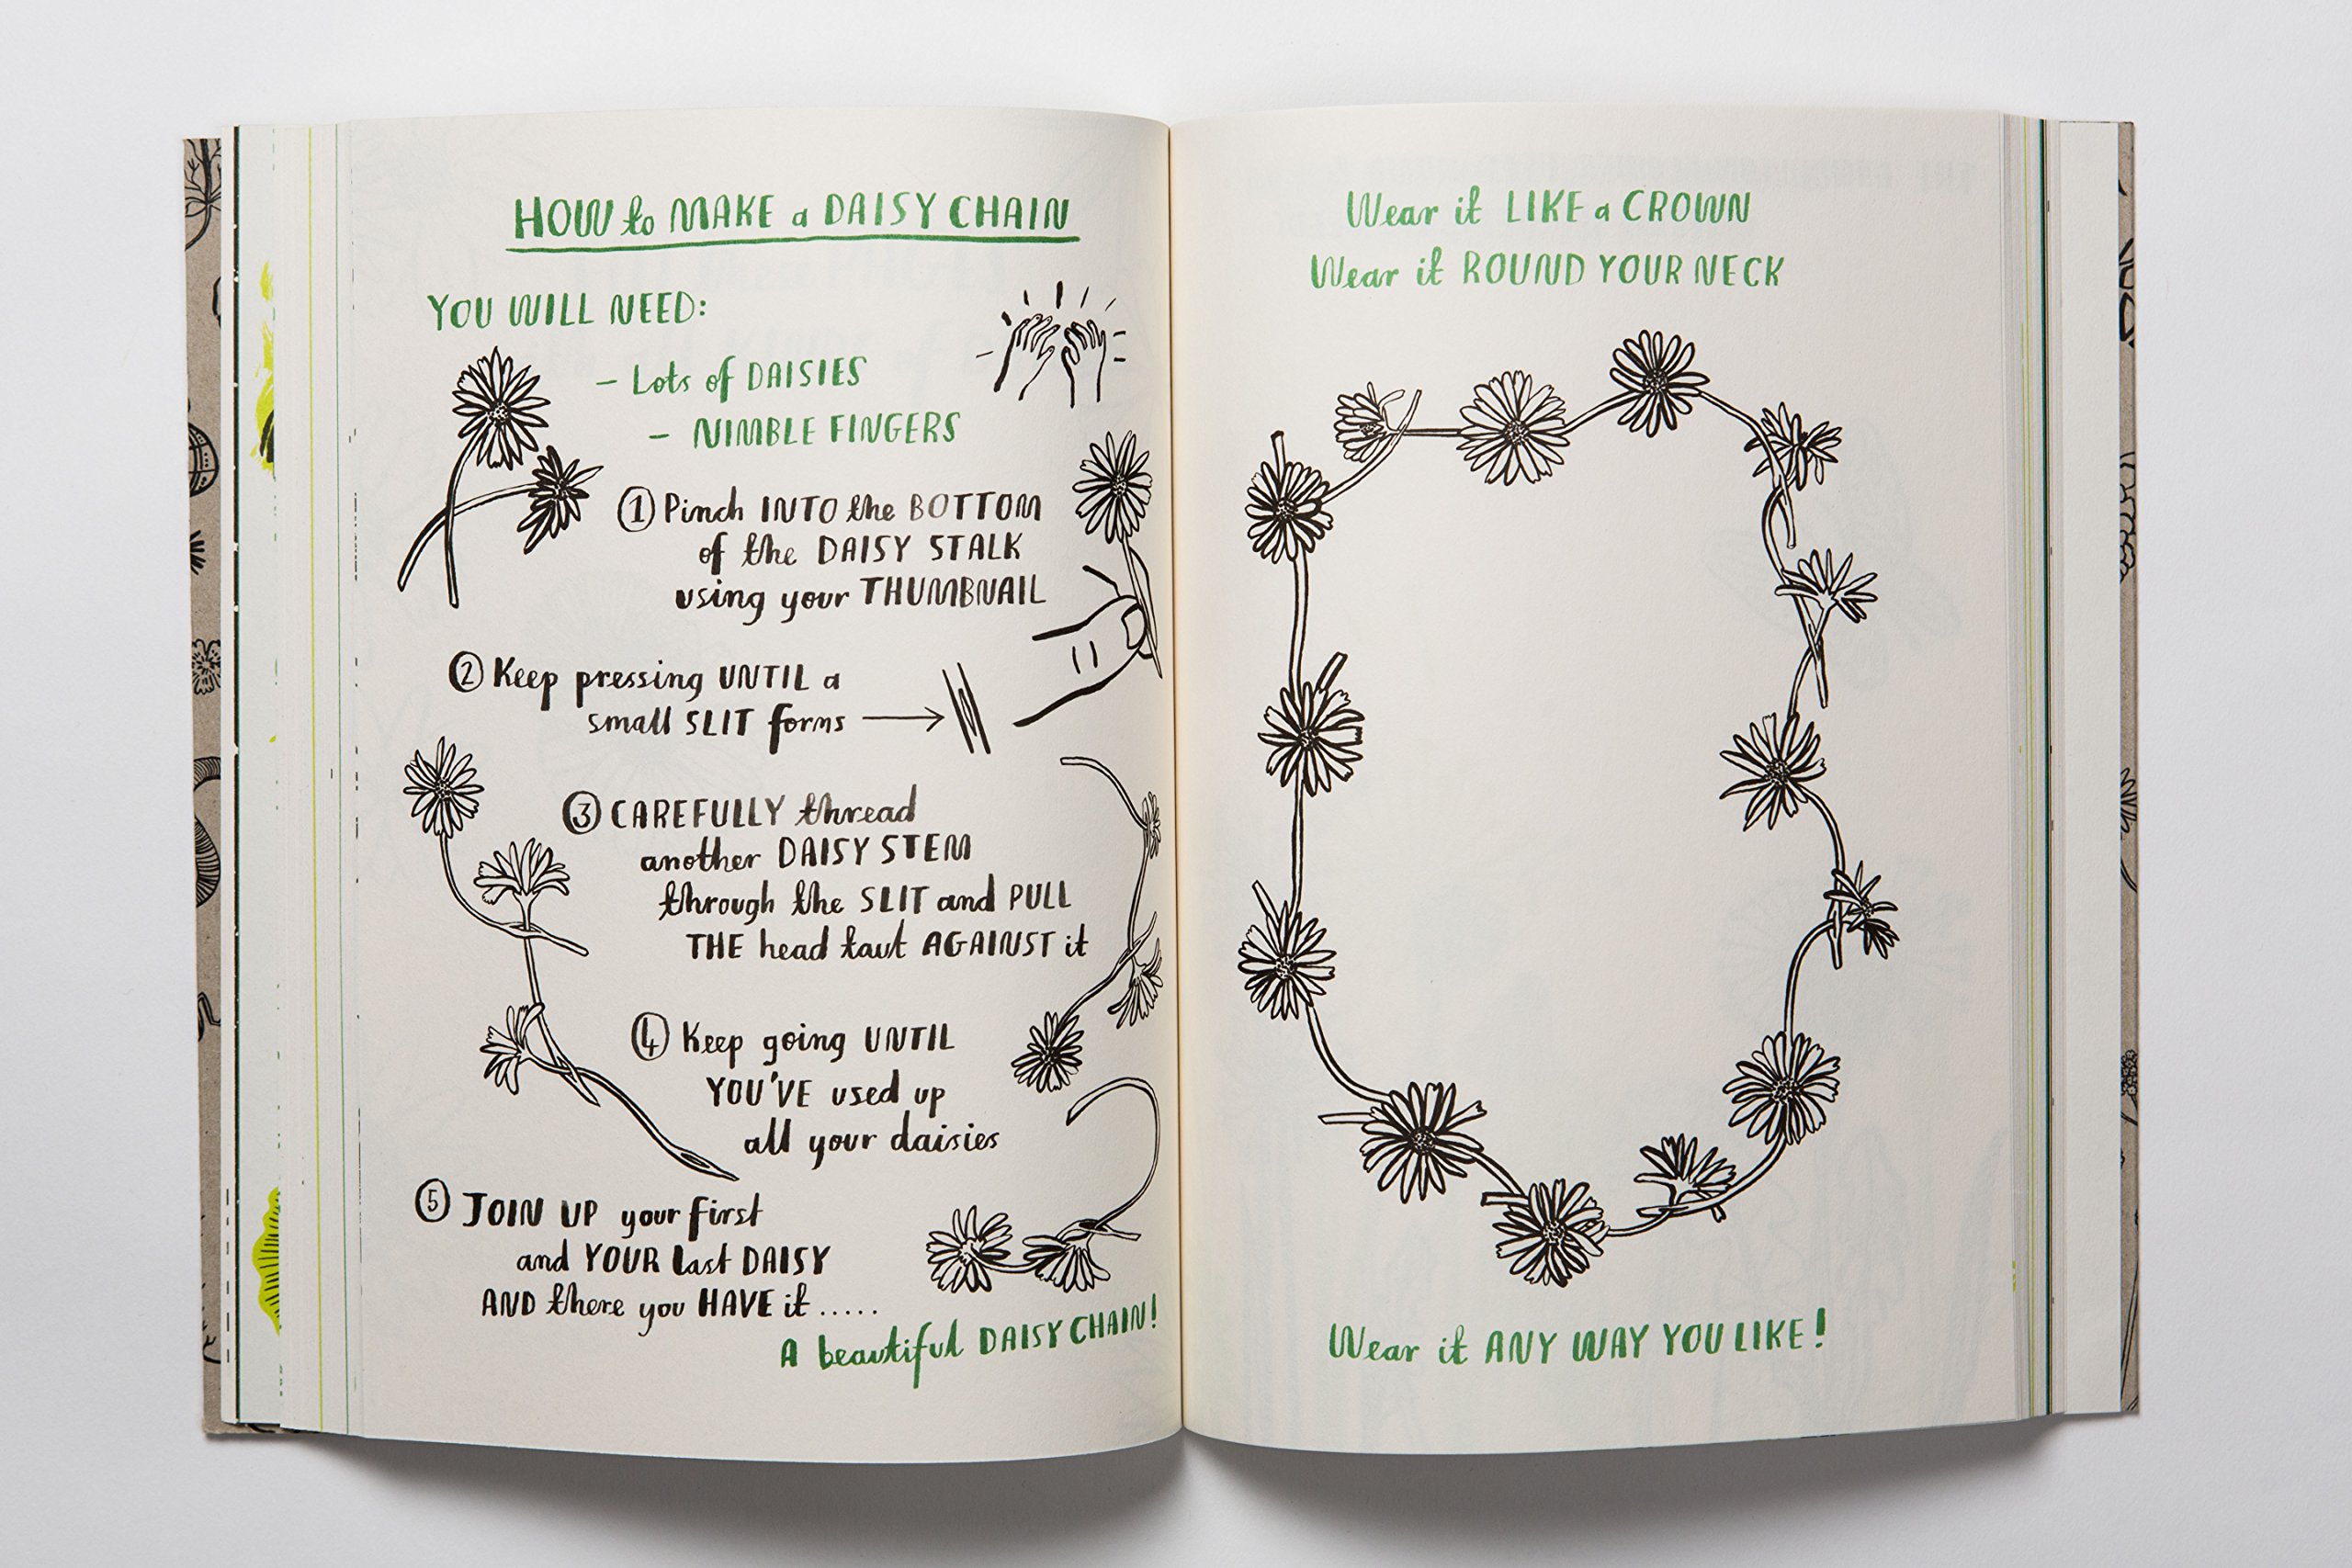 HOW to MAKE a DAISY CHAIN
YOU WILL NEED:
- Lots of DAISIES
- NIMBLE FINGERS
① Pinch INTO the BOTTOM
of the DAISY STALK
using your THUMBNAIL
② Keep pressing UNTIL a
small SLIT forms
③ CAREFULLY thread
another DAISY STEM
through the SLIT and PULL
THE head taut AGAINST it
④ Keep going UNTIL
YOU'VE used up
all your daisies
⑤ JOIN UP your first
and YOUR last DAISY
AND there you HAVE it .....
A beautiful DAISY CHAIN!
Wear it LIKE a CROWN
Wear it ROUND YOUR NECK
Wear it ANY WAY YOU LIKE!